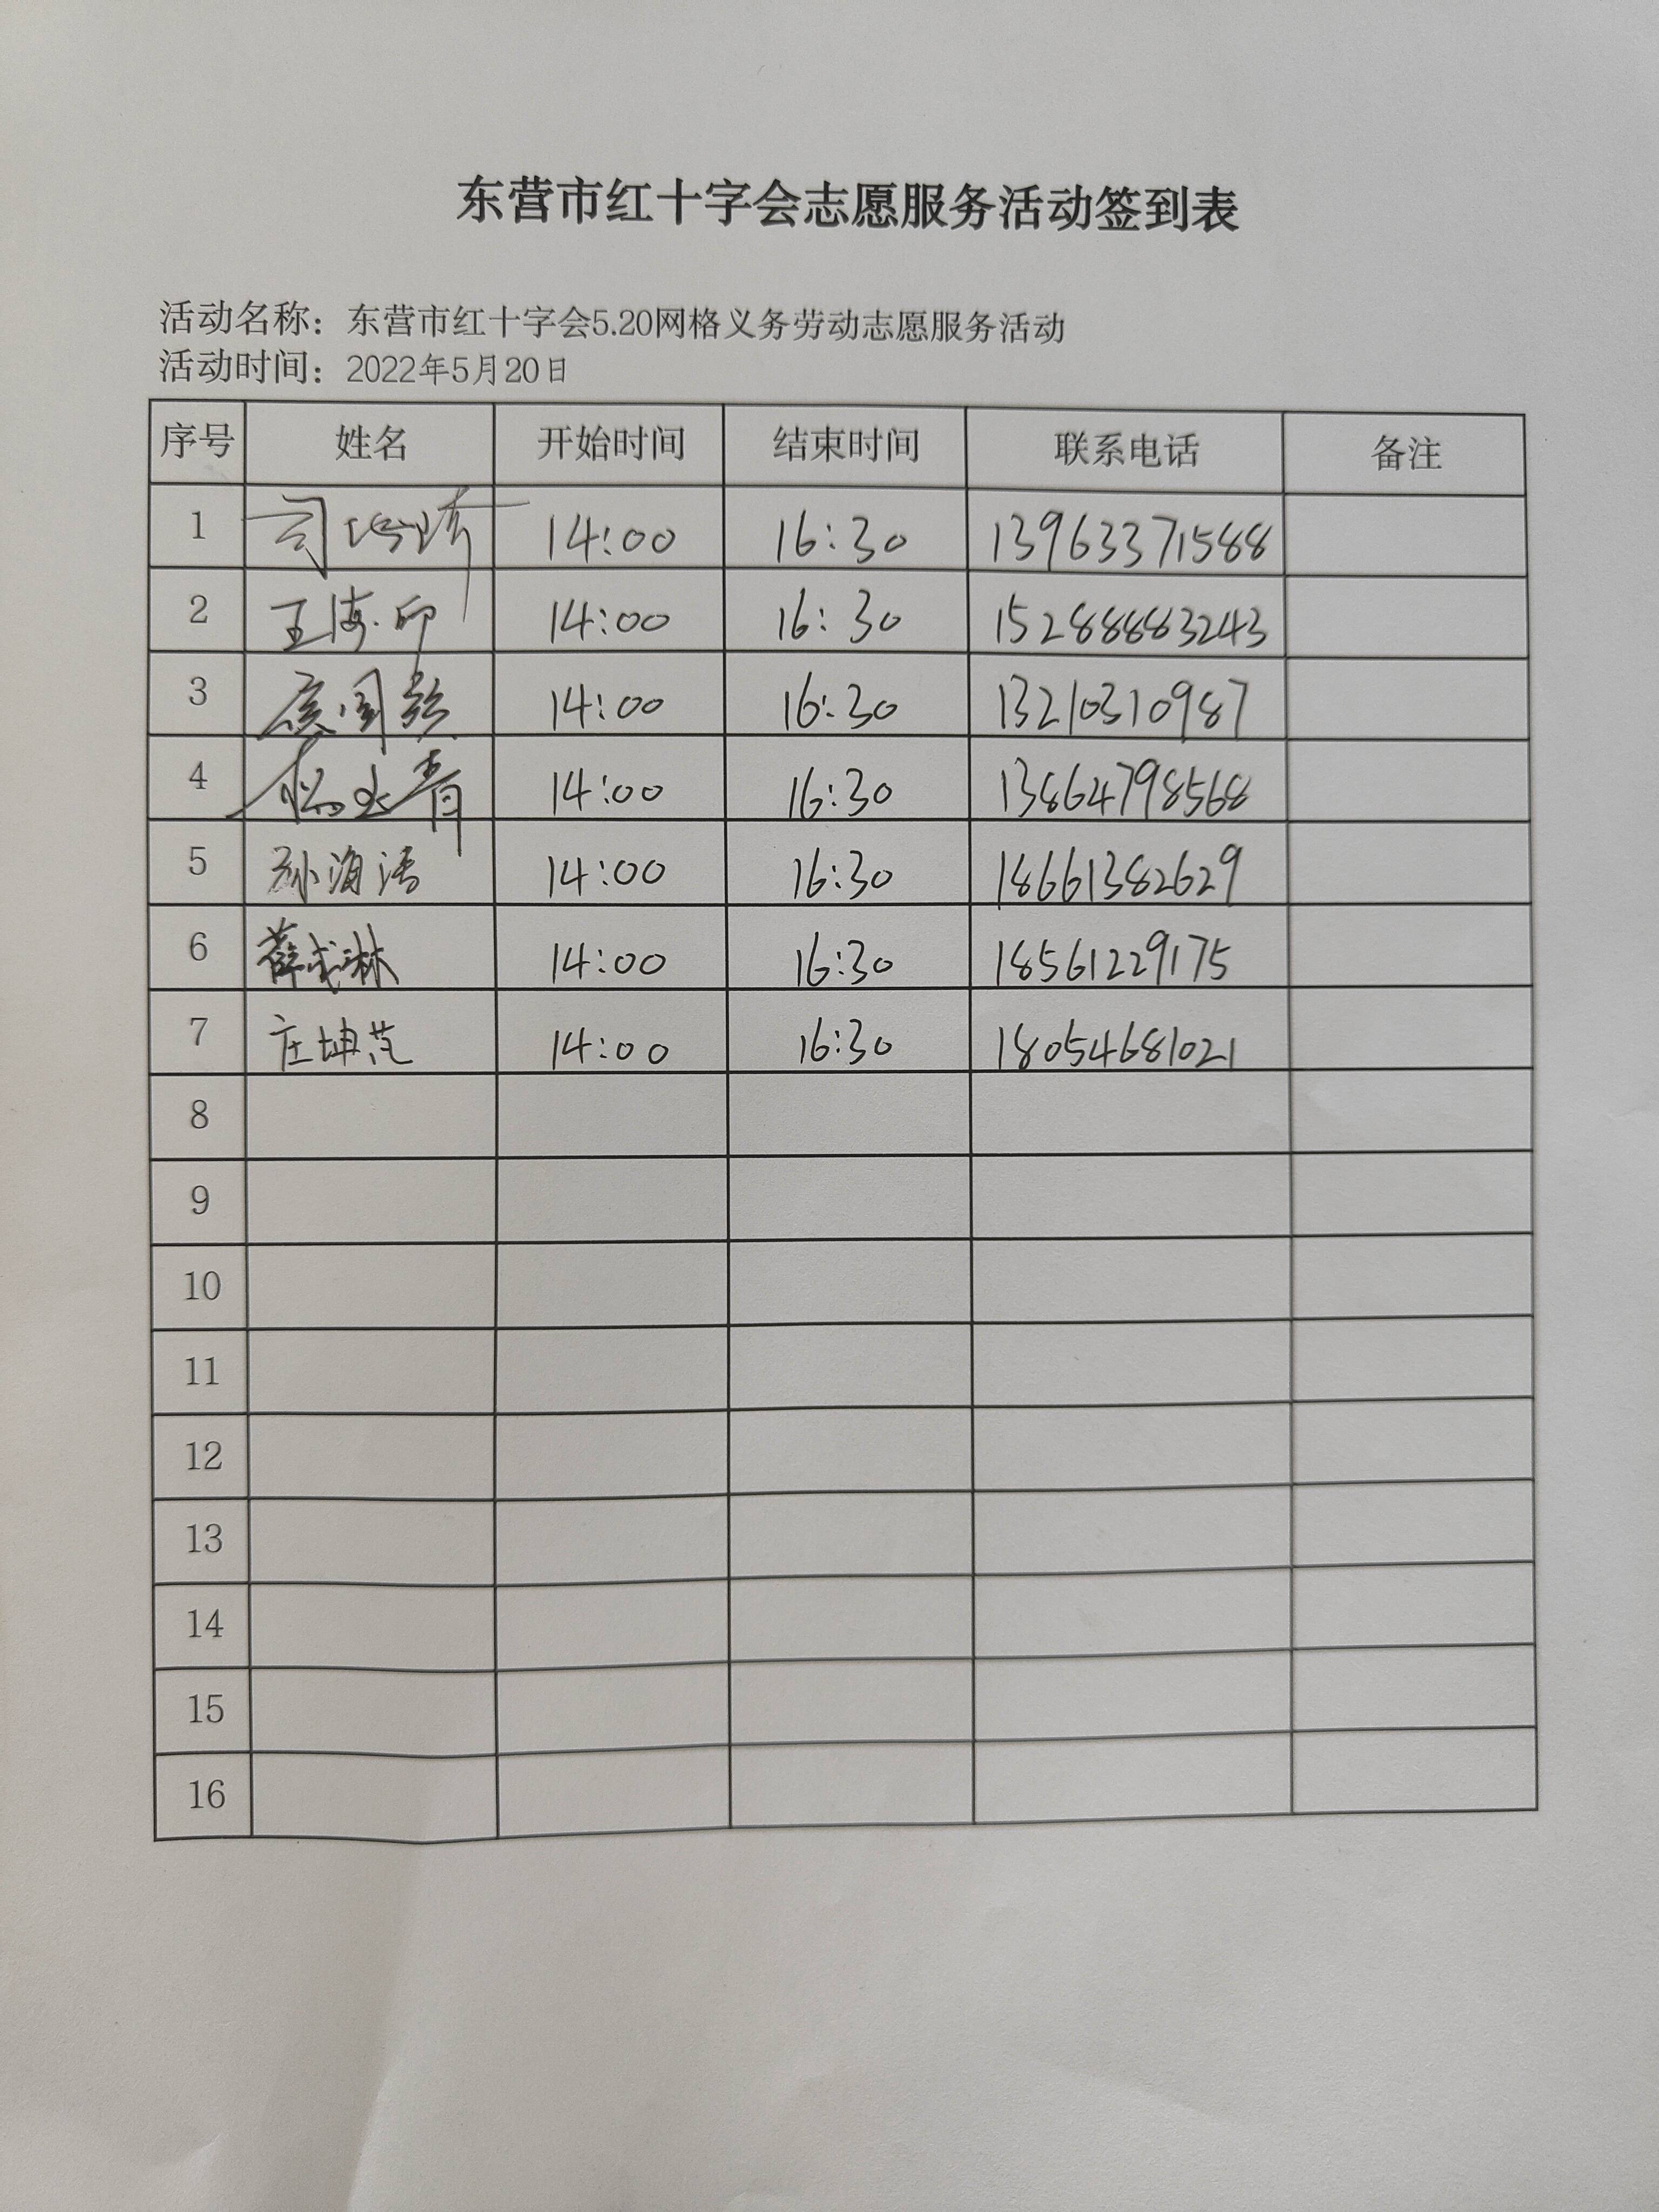 东营市红十字会志愿服务活动签到表
活动名称：东营市红十字会5.20网格义务劳动志愿服务活动
活动时间：2022年5月20日
序号 姓名 开始时间 结束时间 联系电话 备注
1 14:00 16:30 13963371588
2 王海印 14:00 16:30 15288883243
3 14:00 16:30 13210310987
4 14:00 16:30 13864798568
5 孙海洁 14:00 16:30 18661382629
6 薛成琳 14:00 16:30 18561229175
7 庄坤范 14:00 16:30 18054681021
8
9
10
11
12
13
14
15
16